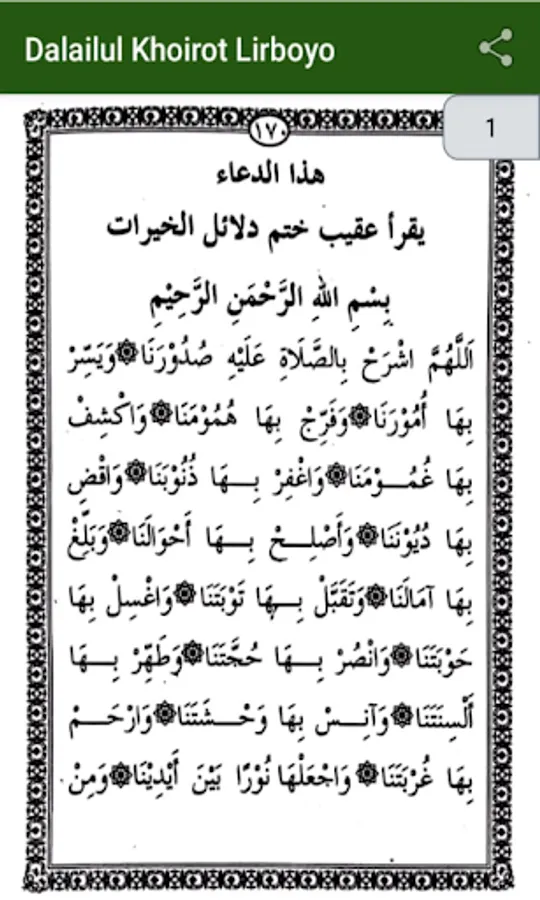 Dalailul Khoirot Lirboyo
1
١٧٠
هذا الدعاء
يقرأ عقيب ختم دلائل الخيرات
بِسْمِ اللهِ الرَّحْمَنِ الرَّحِيْمِ
اَللَّهُمَّ اشْرَحْ بِالصَّلَاةِ عَلَيْهِ صُدُوْرَنَا۞وَيَسِّرْ
بِهَا أُمُوْرَنَا۞وَفَرِّجْ بِهَا هُمُوْمَنَا۞وَاكْشِفْ
بِهَا غُمُـــوْمَنَا۞وَاغْفِرْ بِـــهَا ذُنُوْبَنَا۞وَاقْضِ
بِهَا دُيُوْنَنَا۞وَأَصْلِـــحْ بِـــهَا أَحْوَالَنَا۞وَبَلِّغْ
بِهَا آمَالَنَا۞وَتَقَبَّلْ بِـــهَا تَوْبَتَنَا۞وَاغْسِلْ بِهَا
حَوْبَتَنَا۞وَانْصُرْ بِـــهَا حُجَّتَنَا۞وَطَهِّرْ بِـــهَا
أَلْسِنَتَنَا۞وَآنِـــسْ بِهَا وَحْـــشَتَنَا۞وَارْحَـــمْ
بِهَا غُرْبَتَنَا۞وَاجْعَلْهَا نُوْرًا بَيْنَ أَيْدِيْنَا۞وَمِنْ